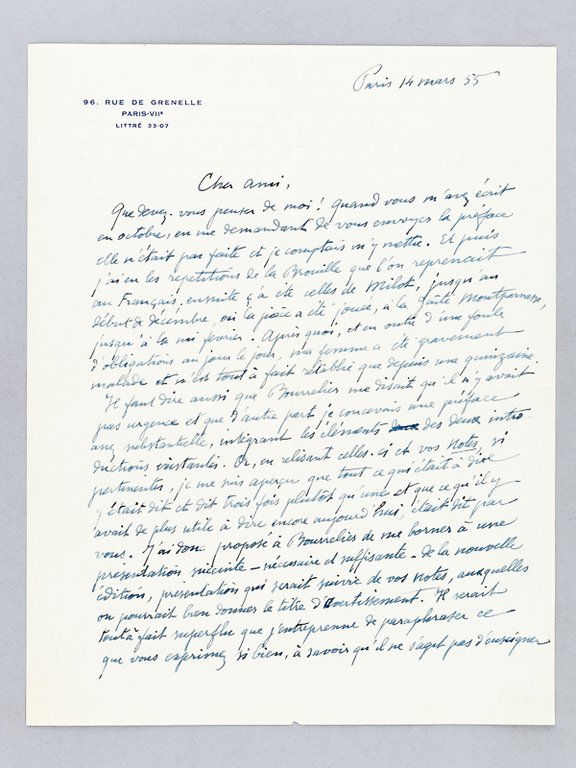 Paris 14 mars 55
96, RUE DE GRENELLE
PARIS-VIIᵉ
LITTRÉ 33-07
Cher ami,
Que devez-vous penser de moi ! Quand vous m'avez écrit
en octobre, en me demandant de vous envoyer la préface
elle n'était pas faite et je comptais m'y mettre. Et puis
j'ai eu les répétitions de la Brouille que l'on reprenait
au Français, ensuite ç'a été celles de Milot, jusqu'au
début de décembre, où la pièce a été jouée, à la Gaîté Montparnasse,
jusqu'à la mi février. Après quoi, et en outre d'une foule
d'obligations au jour le jour, ma femme a été gravement
malade et n'est tout à fait rétablie que depuis une quinzaine.
Il faut dire aussi que Bourrelier me disait qu'il n'y avait
pas urgence et que d'autre part je concevais une préface
assez substantielle, intégrant les éléments des deux intro-
ductions existantes. Or, en relisant celles-ci et vos Notes, si
pertinentes, je me suis aperçu que tout ce qui était à dire
y était dit et dit trois fois plutôt qu'une et que ce qu'il y
avait de plus utile à dire encore aujourd'hui, était dit par
vous. J'ai donc proposé à Bourrelier de me borner à une
présentation succincte – nécessaire et suffisante – de la nouvelle
édition, présentation qui serait suivie de vos notes, auxquelles
on pourrait bien donner le titre d'Avertissement. Il serait
tout à fait superflu que j'entreprenne de paraphraser ce
que vous exprimez si bien, à savoir qu'il ne s'agit pas d'enseigner